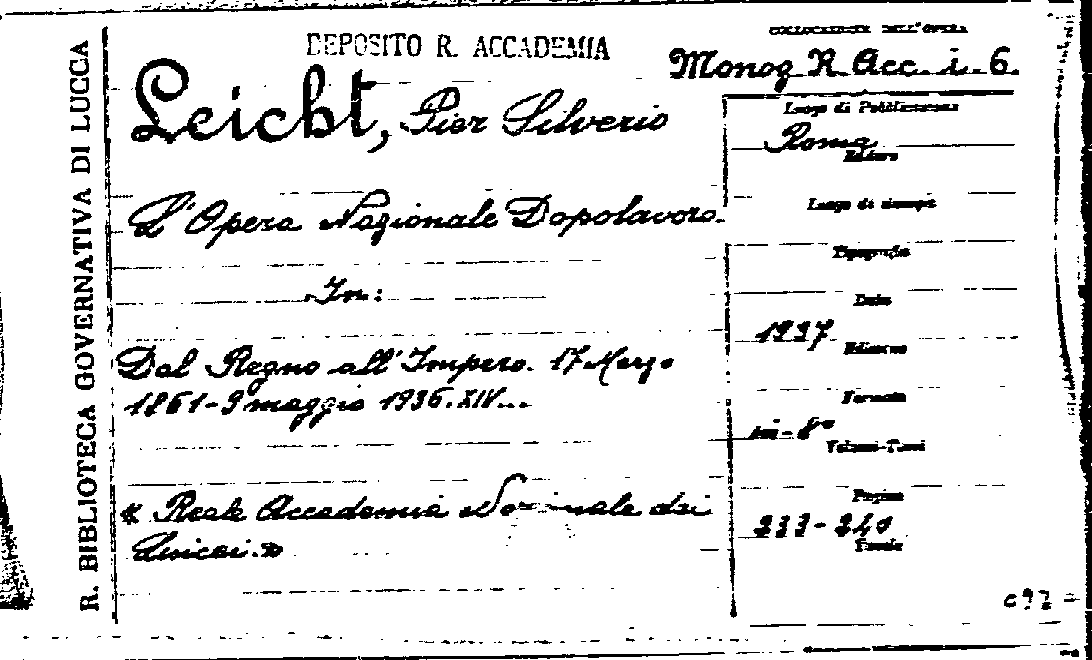 R. BIBLIOTECA GOVERNATIVA DI LUCCA
DEPOSITO R. ACCADEMIA
COLLOCAZIONE DELL'OPERA
Monog R. Acc. i. 6.
Leicht, Pier Silverio
L'Opera Nazionale Dopolavoro.
In:
Dal Regno all'Impero. 17 Marzo
1861-9 maggio 1936. XIV...
« Reale Accademia Nazionale dei
Lincei. »
Luogo di Pubblicazione
Roma
Editore
Luogo di stampa
Tipografia
Data
1937
Edizione
Formato
in-8°
Volumi-Tomi
Pagine
233-240
Tavole